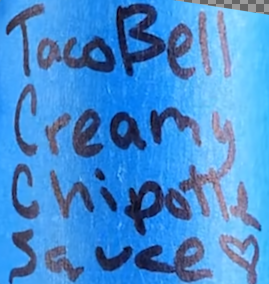 Taco Bell
Creamy
Chipotle
Sauce♡